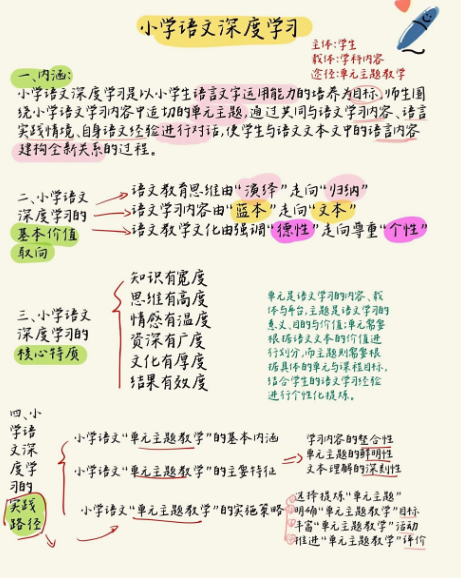 小学语文深度学习
主体:学生
载体:学科内容
途径:单元主题教学
一、内涵:
小学语文深度学习是以小学生语言文字运用能力的培养为目标,师生围
绕小学语文学习内容中适切的单元主题,通过共同与语文学习内容、语言
实践情境、自身语文经验进行对话,使学生与语文文本文中的语言内容
建构全新关系的过程。
二、小学语文
深度学习的
基本价值
取向
语文教育思维由“演绎”走向“归纳”
语文学习内容由“蓝本”走向“文本”
语文教学文化由强调“德性”走向尊重“个性”
三、小学语文
深度学习的
核心特质
知识有宽度
思维有高度
情感有温度
资深有广度
文化有厚度
结果有效度
单元是语文学习的内容、载
体与平台,主题是语文学习的
意义、目的与价值;单元需要
根据语文文本的价值进
行划分,而主题则需要根
据具体的单元与课程目标,
结合学生的语文学习经验
进行个性化提炼。
四、小
学语
文深
度学
习的
实践
路径
小学语文“单元主题教学”的基本内涵
小学语文“单元主题教学”的主要特征
学习内容的整合性
单元主题的鲜明性
文本理解的深刻性
小学语文“单元主题教学”的实施策略
选择提炼“单元主题”
明确“单元主题教学”目标
丰富“单元主题教学”活动
推进“单元主题教学”评价